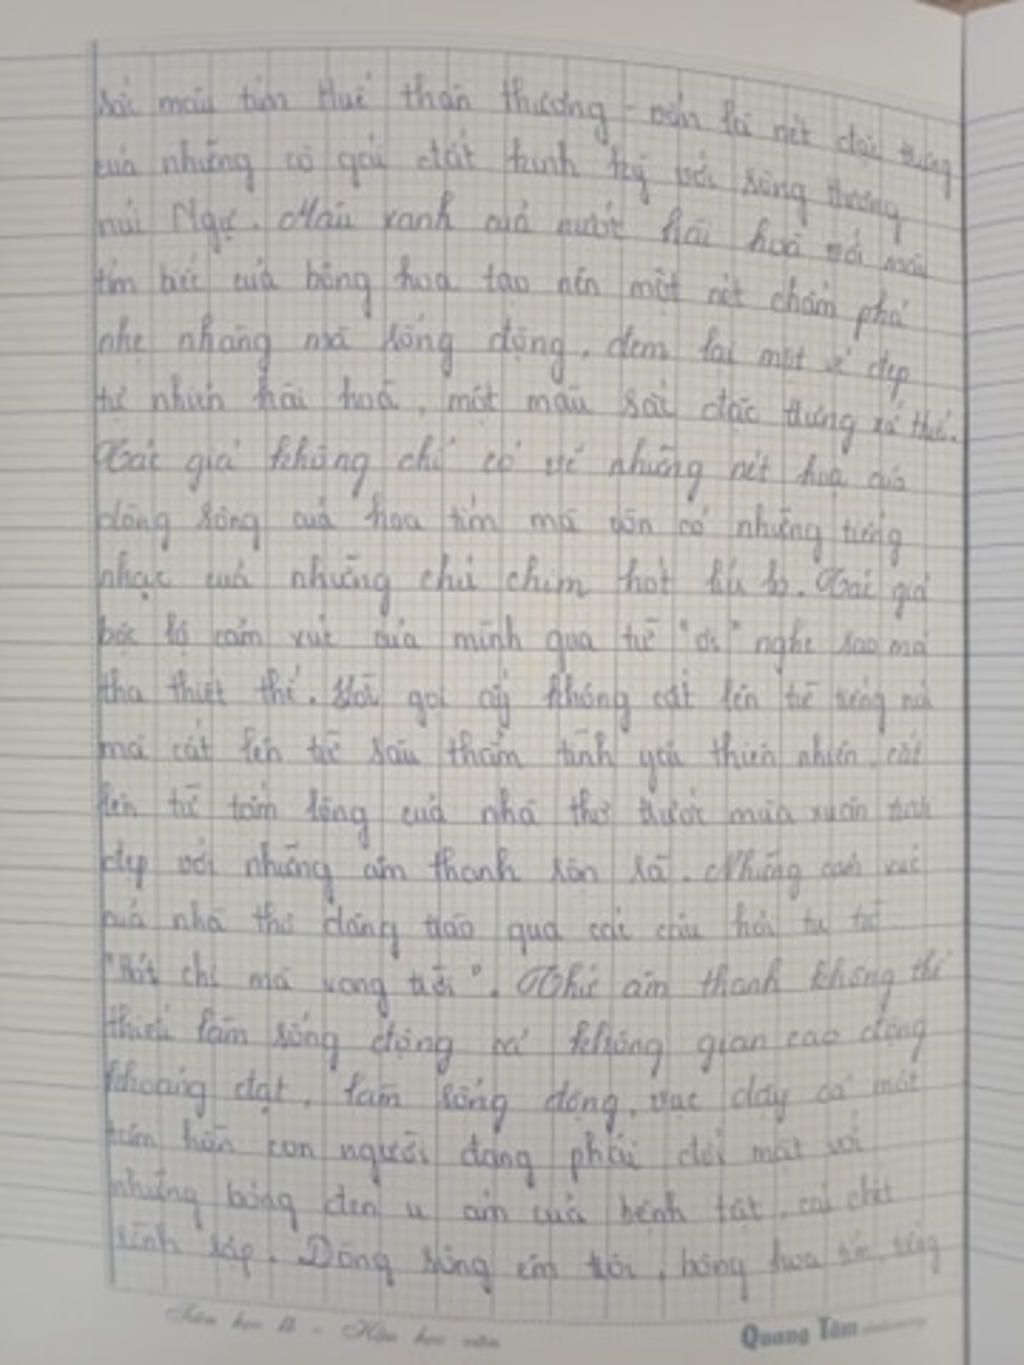 sắc màu tím Huế thân thương - vốn là nét đặc trưng
của những cô gái đất kinh kỳ với sông Hương
núi Ngự. Màu xanh của nước hài hoà với màu
tím biếc của bông hoa tạo nên một nét chấm phá
nhẹ nhàng mà sống động, đem lại một vẻ đẹp
tự nhiên hài hoà, một màu sắc đặc trưng xứ Huế.
Tác giả không chỉ có vẽ những nét hoạ của
dòng sông của hoa tím mà còn có những tiếng
nhạc của những chú chim hót líu lo. Tác giả
bộc lộ cảm xúc của mình qua từ "ơi" nghe sao mà
tha thiết thế. Lời gọi ấy không cất lên từ tiếng nói
mà cất lên từ sâu thẳm tình yêu thiên nhiên, cất
lên từ tấm lòng của nhà thơ trước mùa xuân tươi
đẹp với những âm thanh rộn rã. Những cảm xúc
của nhà thơ dâng trào qua cái câu hỏi tu từ
"Hót chi mà vang trời". Thứ âm thanh không thể
thiếu làm sống động cả không gian cao rộng
khoáng đạt, làm sống động, vực dậy cả một
tâm hồn con người đang phải đối mặt với
những bóng đen u ám của bệnh tật, cái chết
rình rập. Dòng sông êm trôi, bông hoa tím
Quang Tâm